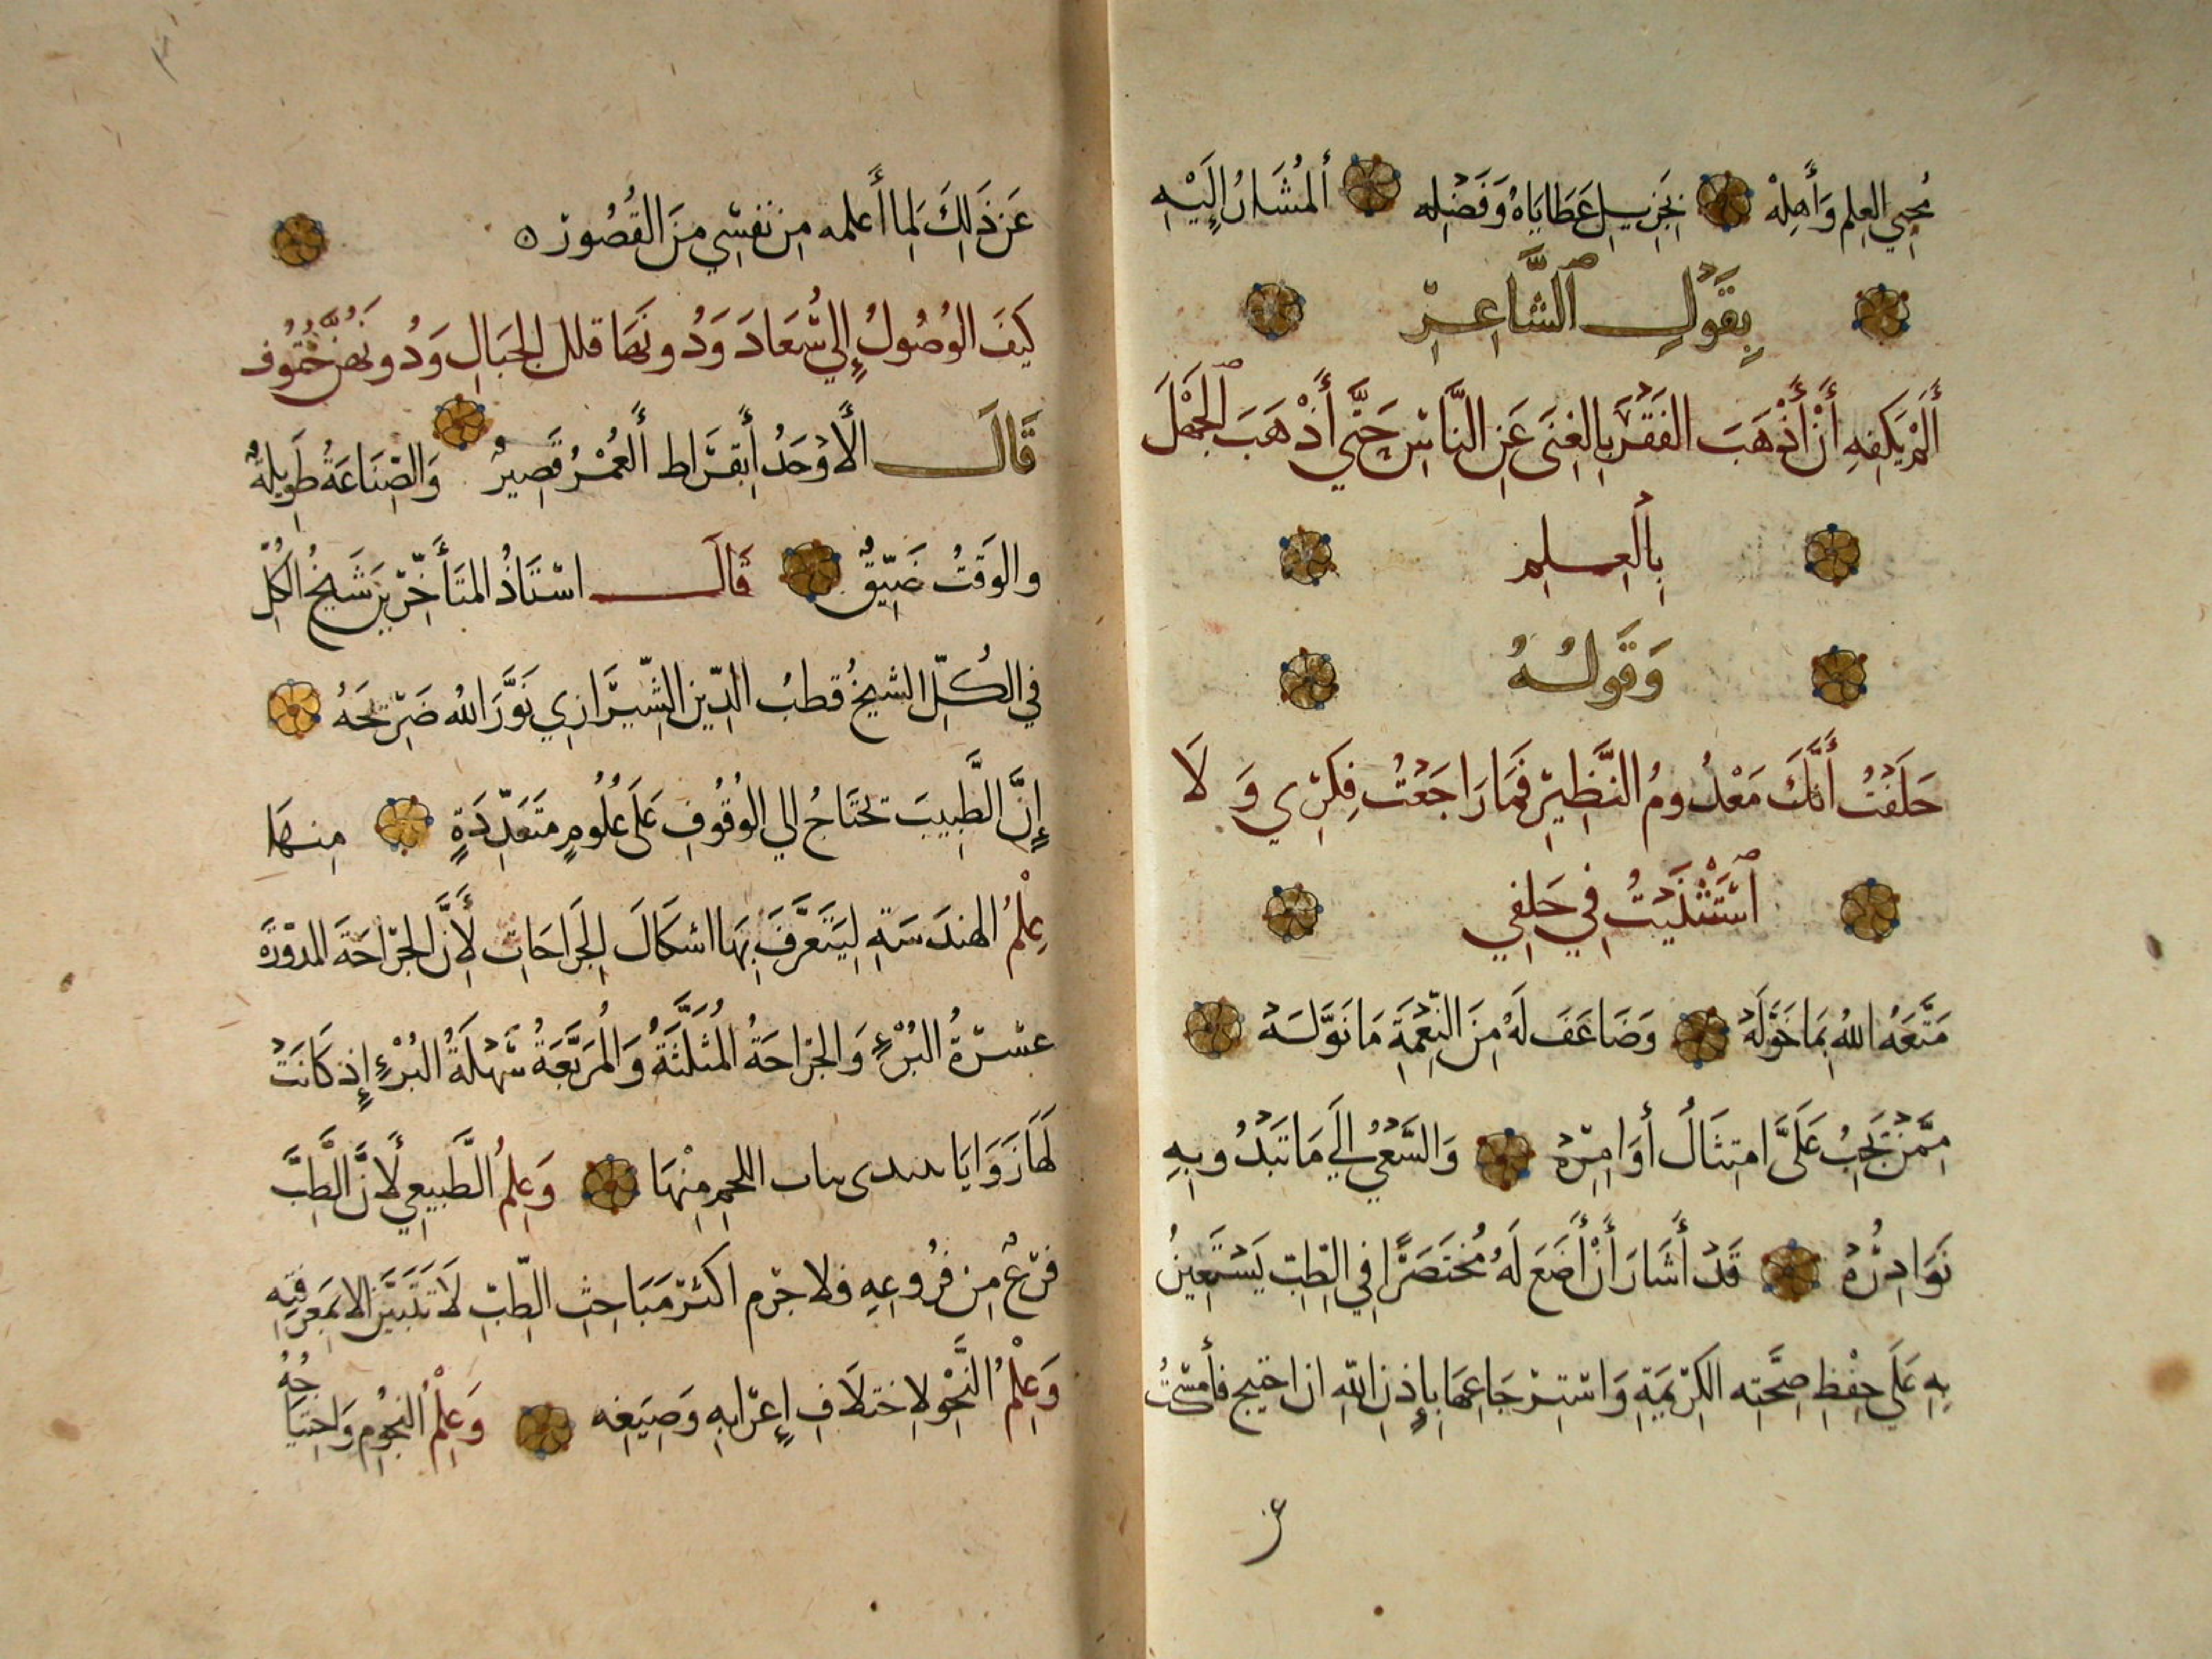 مُحيي العِلم وَأَهلِهْ بجَزيل عَطَايَاهُ وَفَضْلِه أَلمُشَارُ إِلَيْهِ
بِقَولِ الشَّاعِرِ
أَلَمْ يَكفِهِ أَنْ أَذْهَبَ الفَقْرَ بِالغِنَى عَنِ النَّاسِ حَتَّى أَذْهَبَ الجَهْلَ
بِالعِلمِ
وَقَولُهُ
حَلَفْتُ أَنَّكَ مَعْدُومُ النَّظِيرِ فَمَا رَاجَعْتُ فِكرِي وَلَا
اسْتَثْنَيْتُ فِي حَلفِي
مَتَّعَهُ اللهُ بِمَا خَوَّلَهْ وَضَاعَفَ لَهُ مِنَ النِّعْمَةِ مَا نَوَّلَهْ
مِمَّنْ يَجِبُ عَلَيَّ امتِثَالُ أَوَامِرِهْ وَالسَّعْيُ إِلَى مَا تَبْدُو بِهِ
نَوَادِرُهْ قَدْ أَشَارَ أَنْ أَضَعَ لَهُ مُختَصَرًا فِي الطِّبِّ يَسْتَعِينُ
بِهِ عَلَى حِفْظِ صِحَّتِه الكَرِيمَةِ وَاسْتِرْجَاعِهَا بِإِذنِ اللهِ ان احتيج فأَمْسَكتُ
عَن ذَلِكَ لِمَا أَعلمه مِن نَفسِي مِنَ القُصُورْ
كَيفَ الوُصُولُ إِلَى سُعَادَ وَدُونَهَا قلل الجِبَالِ وَدُونَهُنَّ حُتُوف
قَالَ الأَوْحَدُ أَبقرَاط أَلعُمْرُ قَصِيرٌ وَالصِّنَاعَةُ طَوِيلةٌ
والوَقتُ ضَيِّقٌ قَالَ اسْتَاذُ المتَأَخِّرِينَ شَيخُ الكُلِّ
فِي الكُلِّ الشيخُ قطبُ الدِّين الشِّيرَازِي نَوَّرَ اللهُ ضَرِيحَهُ
إِنَّ الطَّبِيبَ يحتَاجُ الي الوُقُوفِ عَلَى عُلُومٍ مُتَعَدِّدَةٍ مِنهَا
عِلمُ الهندَسَةِ لِيَتَعَرَّفَ بِهَا اشكَالَ الجَرَاحَاتِ لِأَنَّ الجرَاحَةَ المدَوَّرَة
عسْرَةُ البُرْءِ وَالجرَاحَةُ المُثَلَّثَةُ وَالمُرَبَّعَةُ سَهْلَةُ البُرْءِ إِذ كَانَتْ
لَهَا زَوَايَا يبتدي نبات اللحمِ مِنْهَا وَعِلمُ الطَّبِيعِي لأَنَّ الطِّبَّ
فَرْعٌ مِن فرُوعِهِ فلا جرم اكثر مَبَاحِثِ الطِّبِّ لَا تَتَبَيَّن الا بمَعرفَتِهِ
وَعِلْمُ النَّحْو لاِختلَافِ إِعْرَابِهِ وَصِيَغِه وَعِلْمُ النجُومِ وَاحتِيَاجُهُ